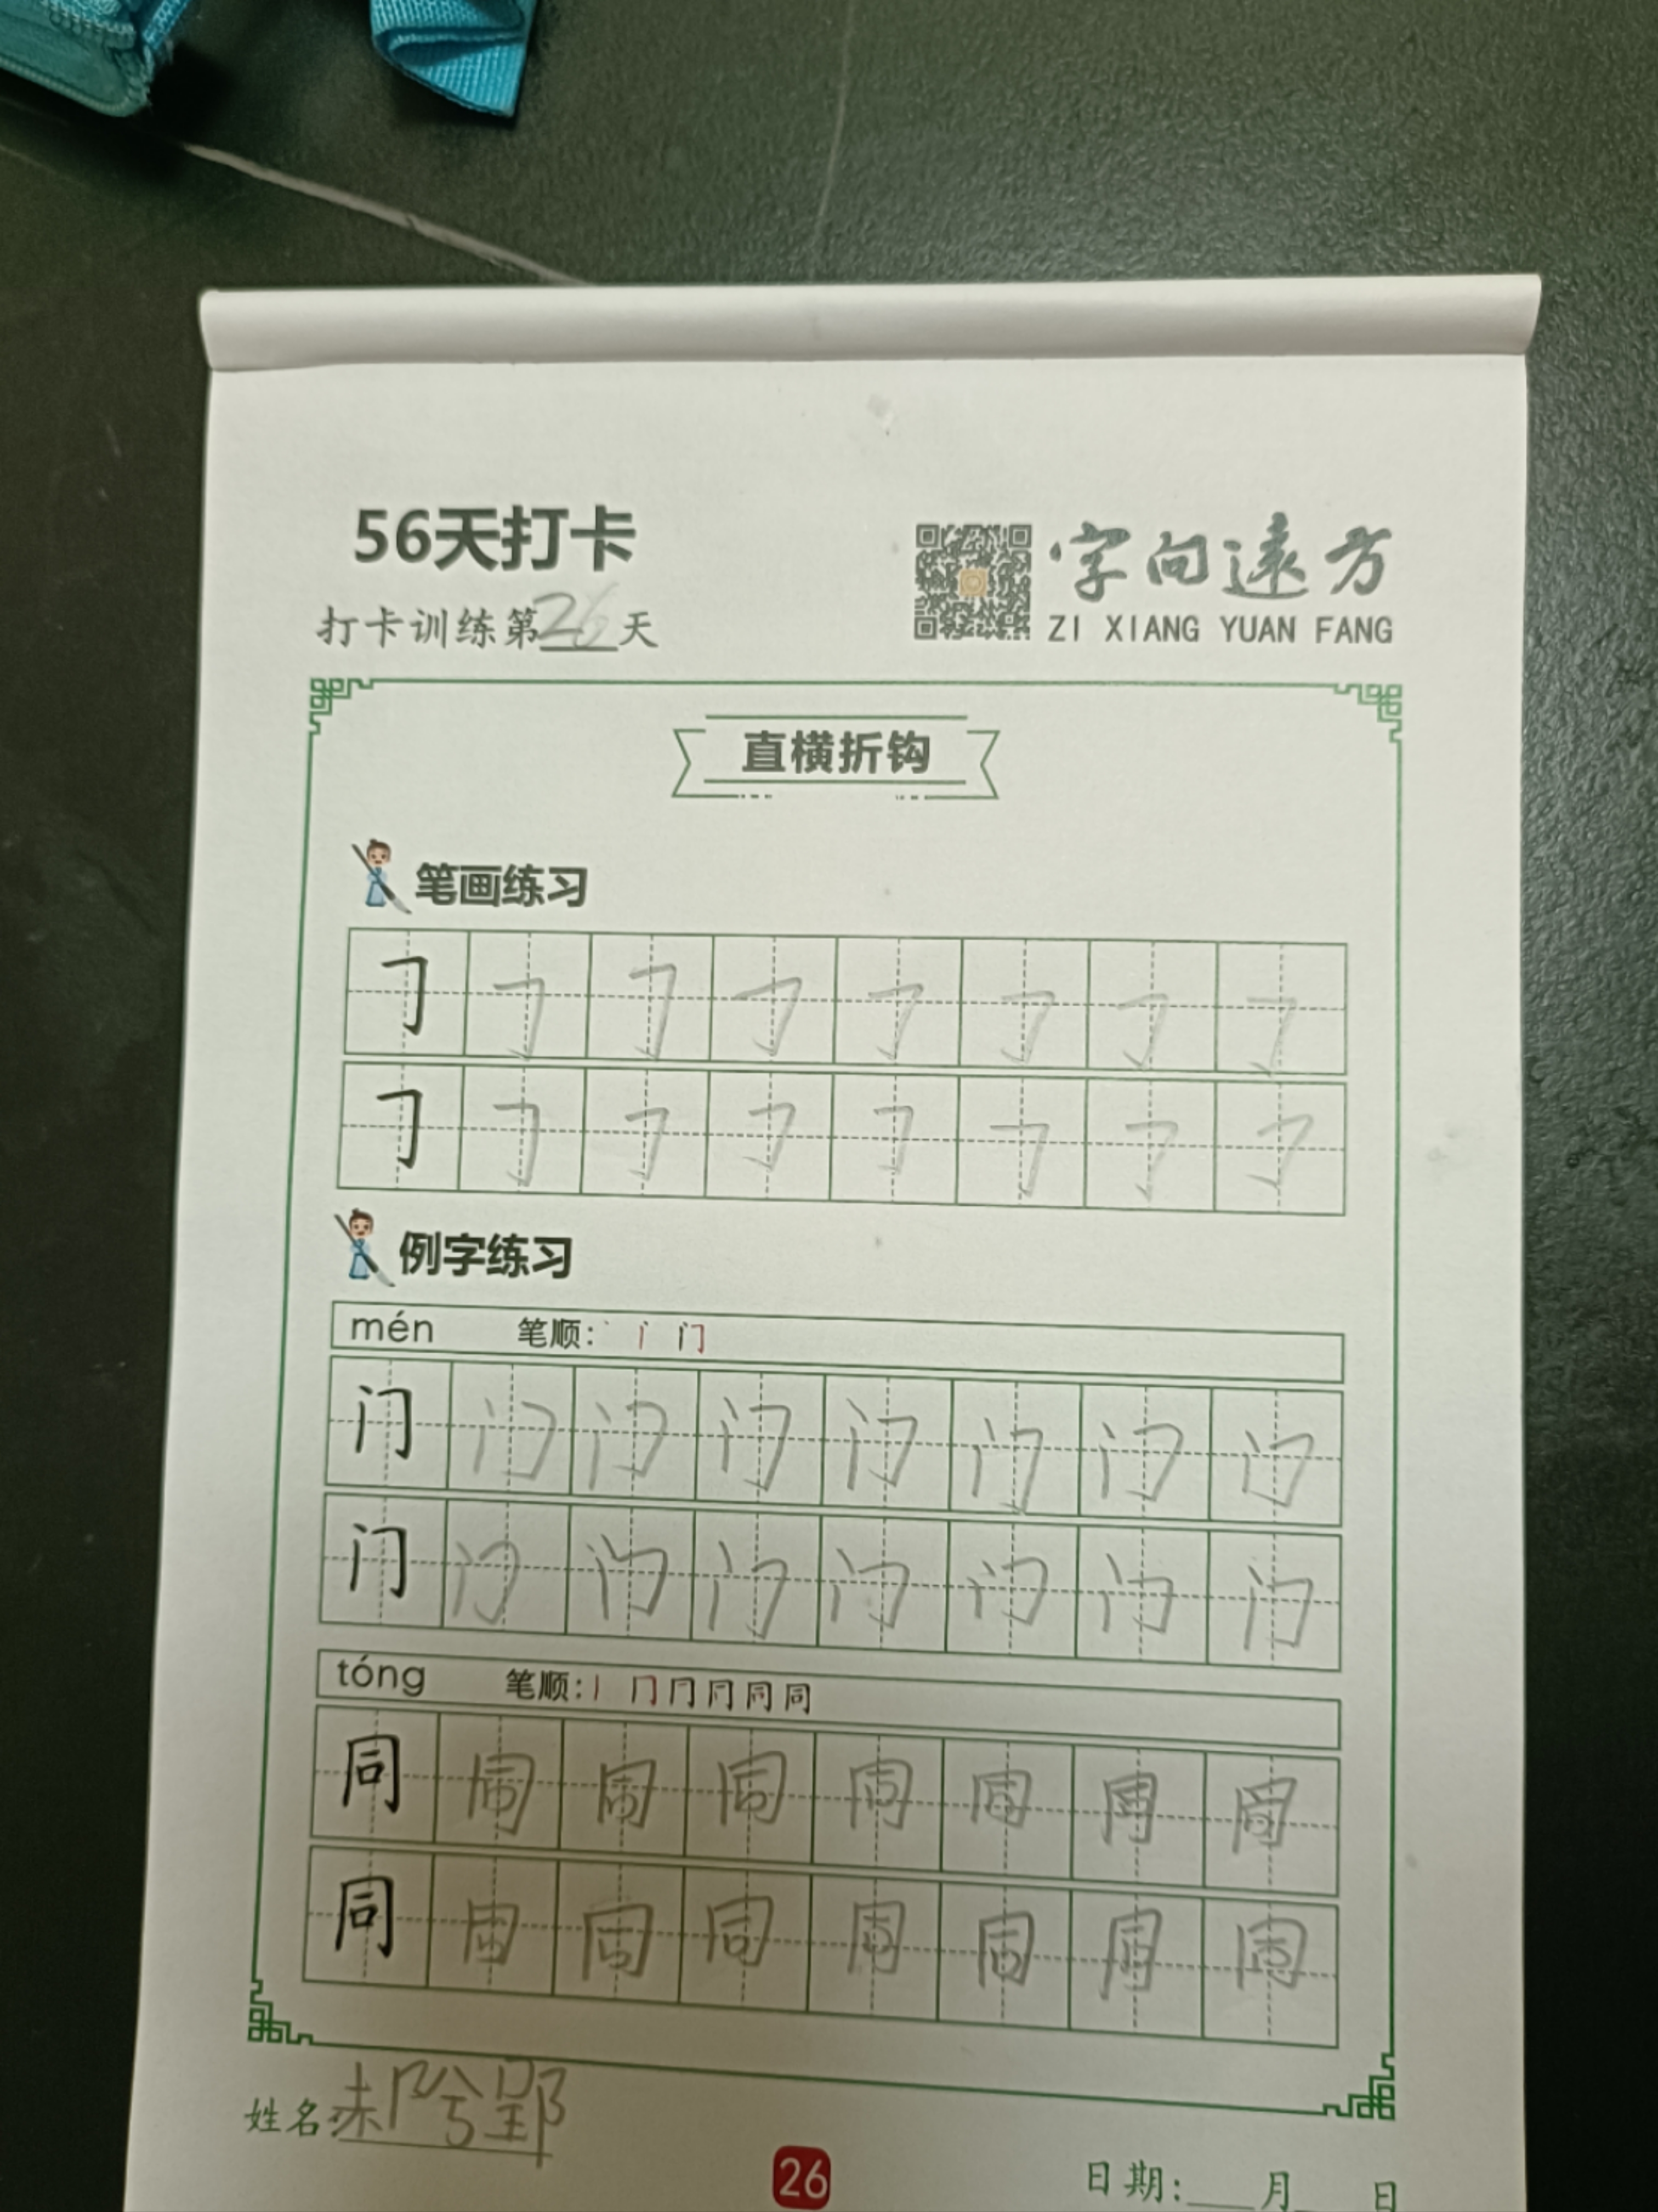 56天打卡
字向遠方
打卡训练第26天
ZI XIANG YUAN FANG
直横折钩
笔画练习
𠃌 𠃌 𠃌 𠃌 𠃌 𠃌 𠃌 𠃌
𠃌 𠃌 𠃌 𠃌 𠃌 𠃌 𠃌 𠃌
例字练习
mén 笔顺: 丶 门
门 门 门 门 门 门 门 门
门 门 门 门 门 门 门 门
tóng 笔顺: 丨 冂 同
同 同 同 同 同 同 同 同
同 同 同 同 同 同 同 同
姓名 郝兮郢
26 日期:___月___日